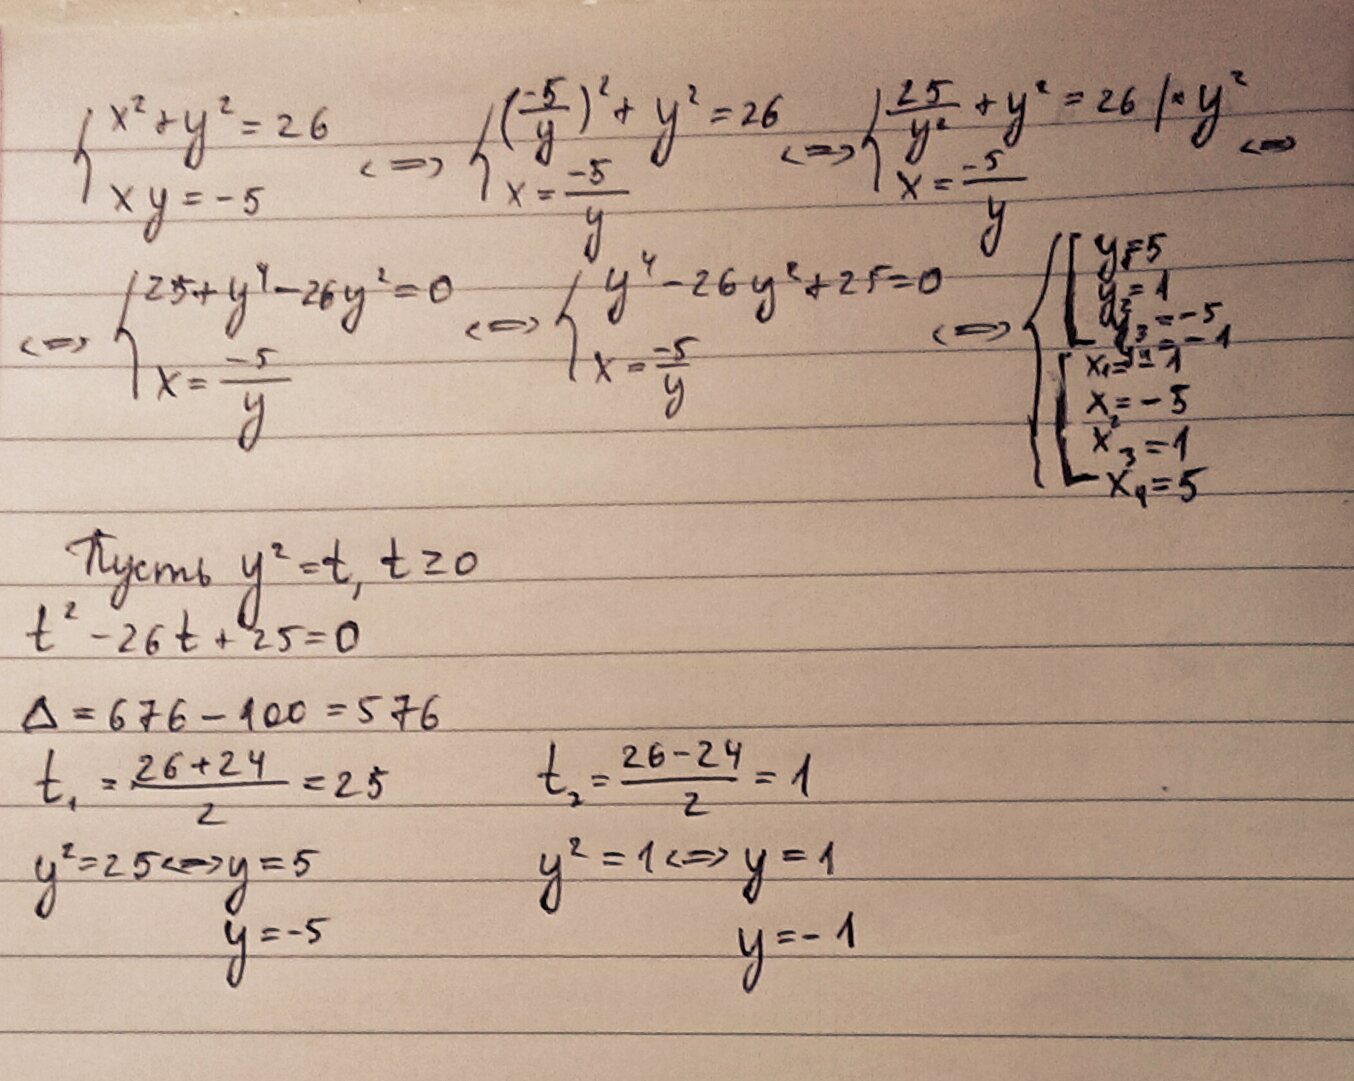 { x² + y² = 26 <=> { (-5/y)² + y² = 26 <=> { 25/y² + y² = 26 | · y² <=>
xy = -5 x = -5/y x = -5/y
<=> { 25 + y⁴ - 26y² = 0 <=> { y⁴ - 26y² + 25 = 0 <=> { [ y₁ = 5
x = -5/y x = -5/y
y₂ = 1
y₃ = -5
y₄ = -1
[ x₁ = -1
x₂ = -5
x₃ = 1
x₄ = 5
Пусть y² = t, t ≥ 0
t² - 26t + 25 = 0
Δ = 676 - 100 = 576
t₁ = (26 + 24)/2 = 25 t₂ = (26 - 24)/2 = 1
y² = 25 <=> y = 5 y² = 1 <=> y = 1
y = -5 y = -1